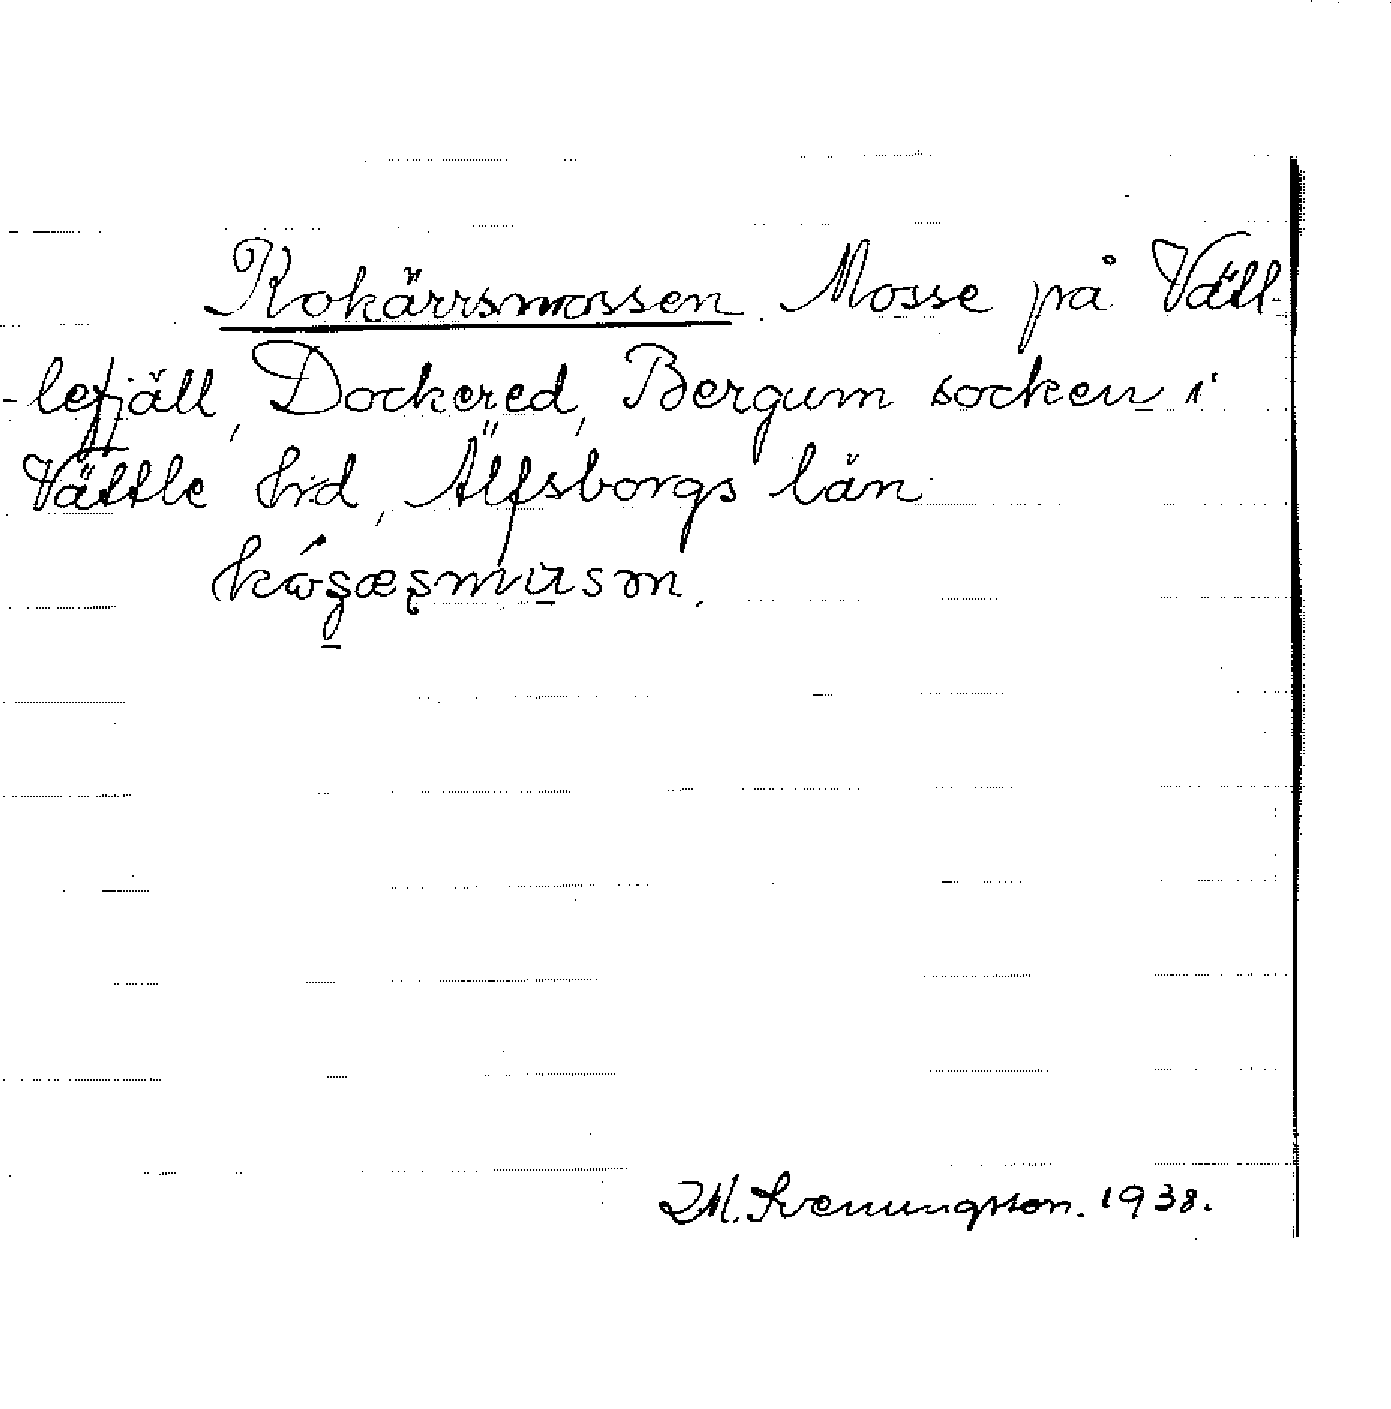 Kokärrsmossen. Mosse på Vätt-
-lefjäll, Dockered, Bergum socken i
Vättle hrd, Älfsborgs län
M. Svenungsson. 1938.